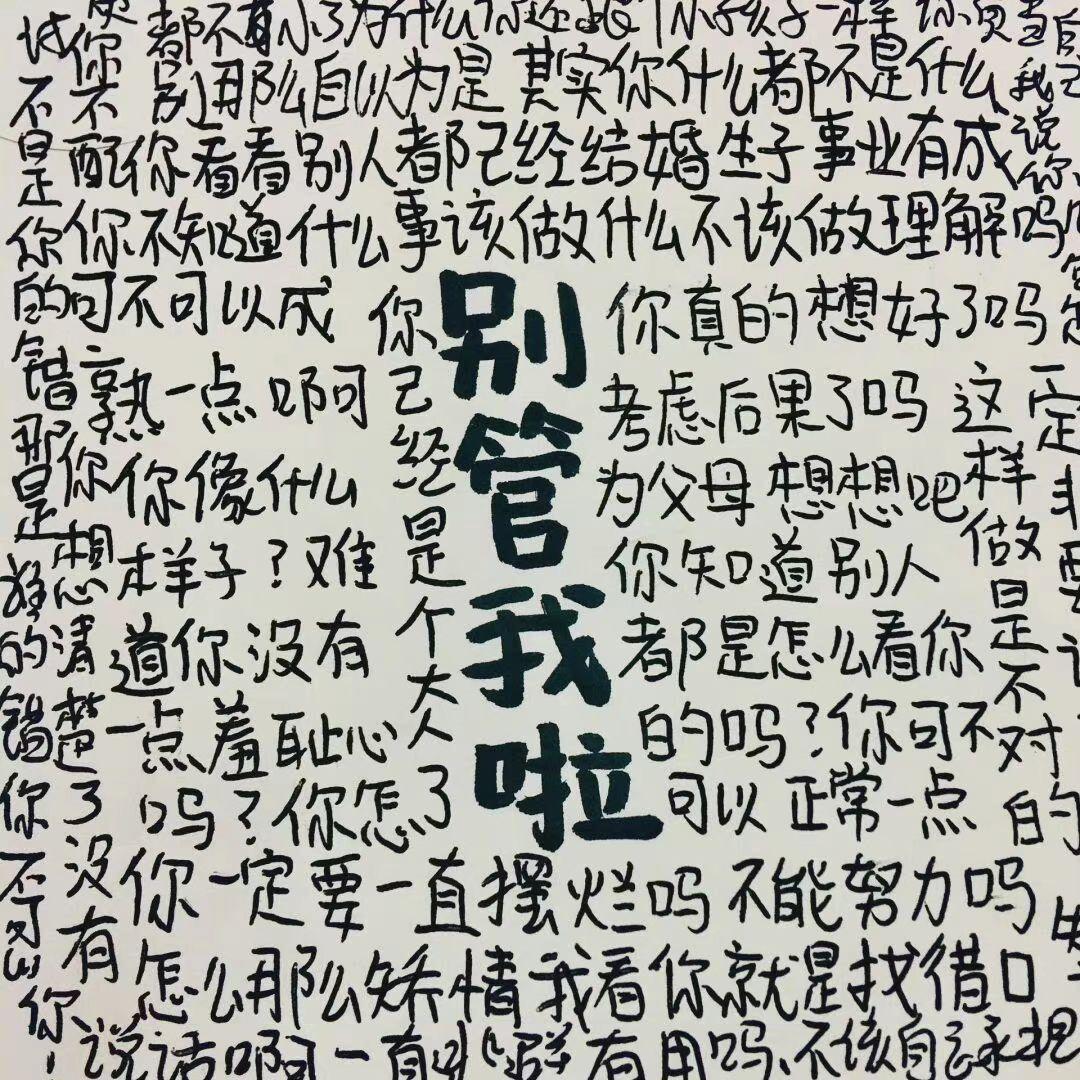 别管我啦
都不
别那么自以为是其实你什么都不是什么
不配你看看别人都已经结婚生子事业有成
你不知道什么事该做什么不该做理解吗
可不可以成
熟一点啊
你像什么
样子？难
道你没有
一点羞耻心
吗？你怎了
你已经是个大人
你真的想好了吗
考虑后果了吗
为父母想想吧
你知道别人
都是怎么看你
的吗？你可不
可以正常一点
这样做是不对的
一定
不是你的错那是
的错你不可以
你想清楚了没有
你一定要一直摆烂吗不能努力吗
怎么那么矫情我看你就是找借口
说话啊一直
有用吗不该自